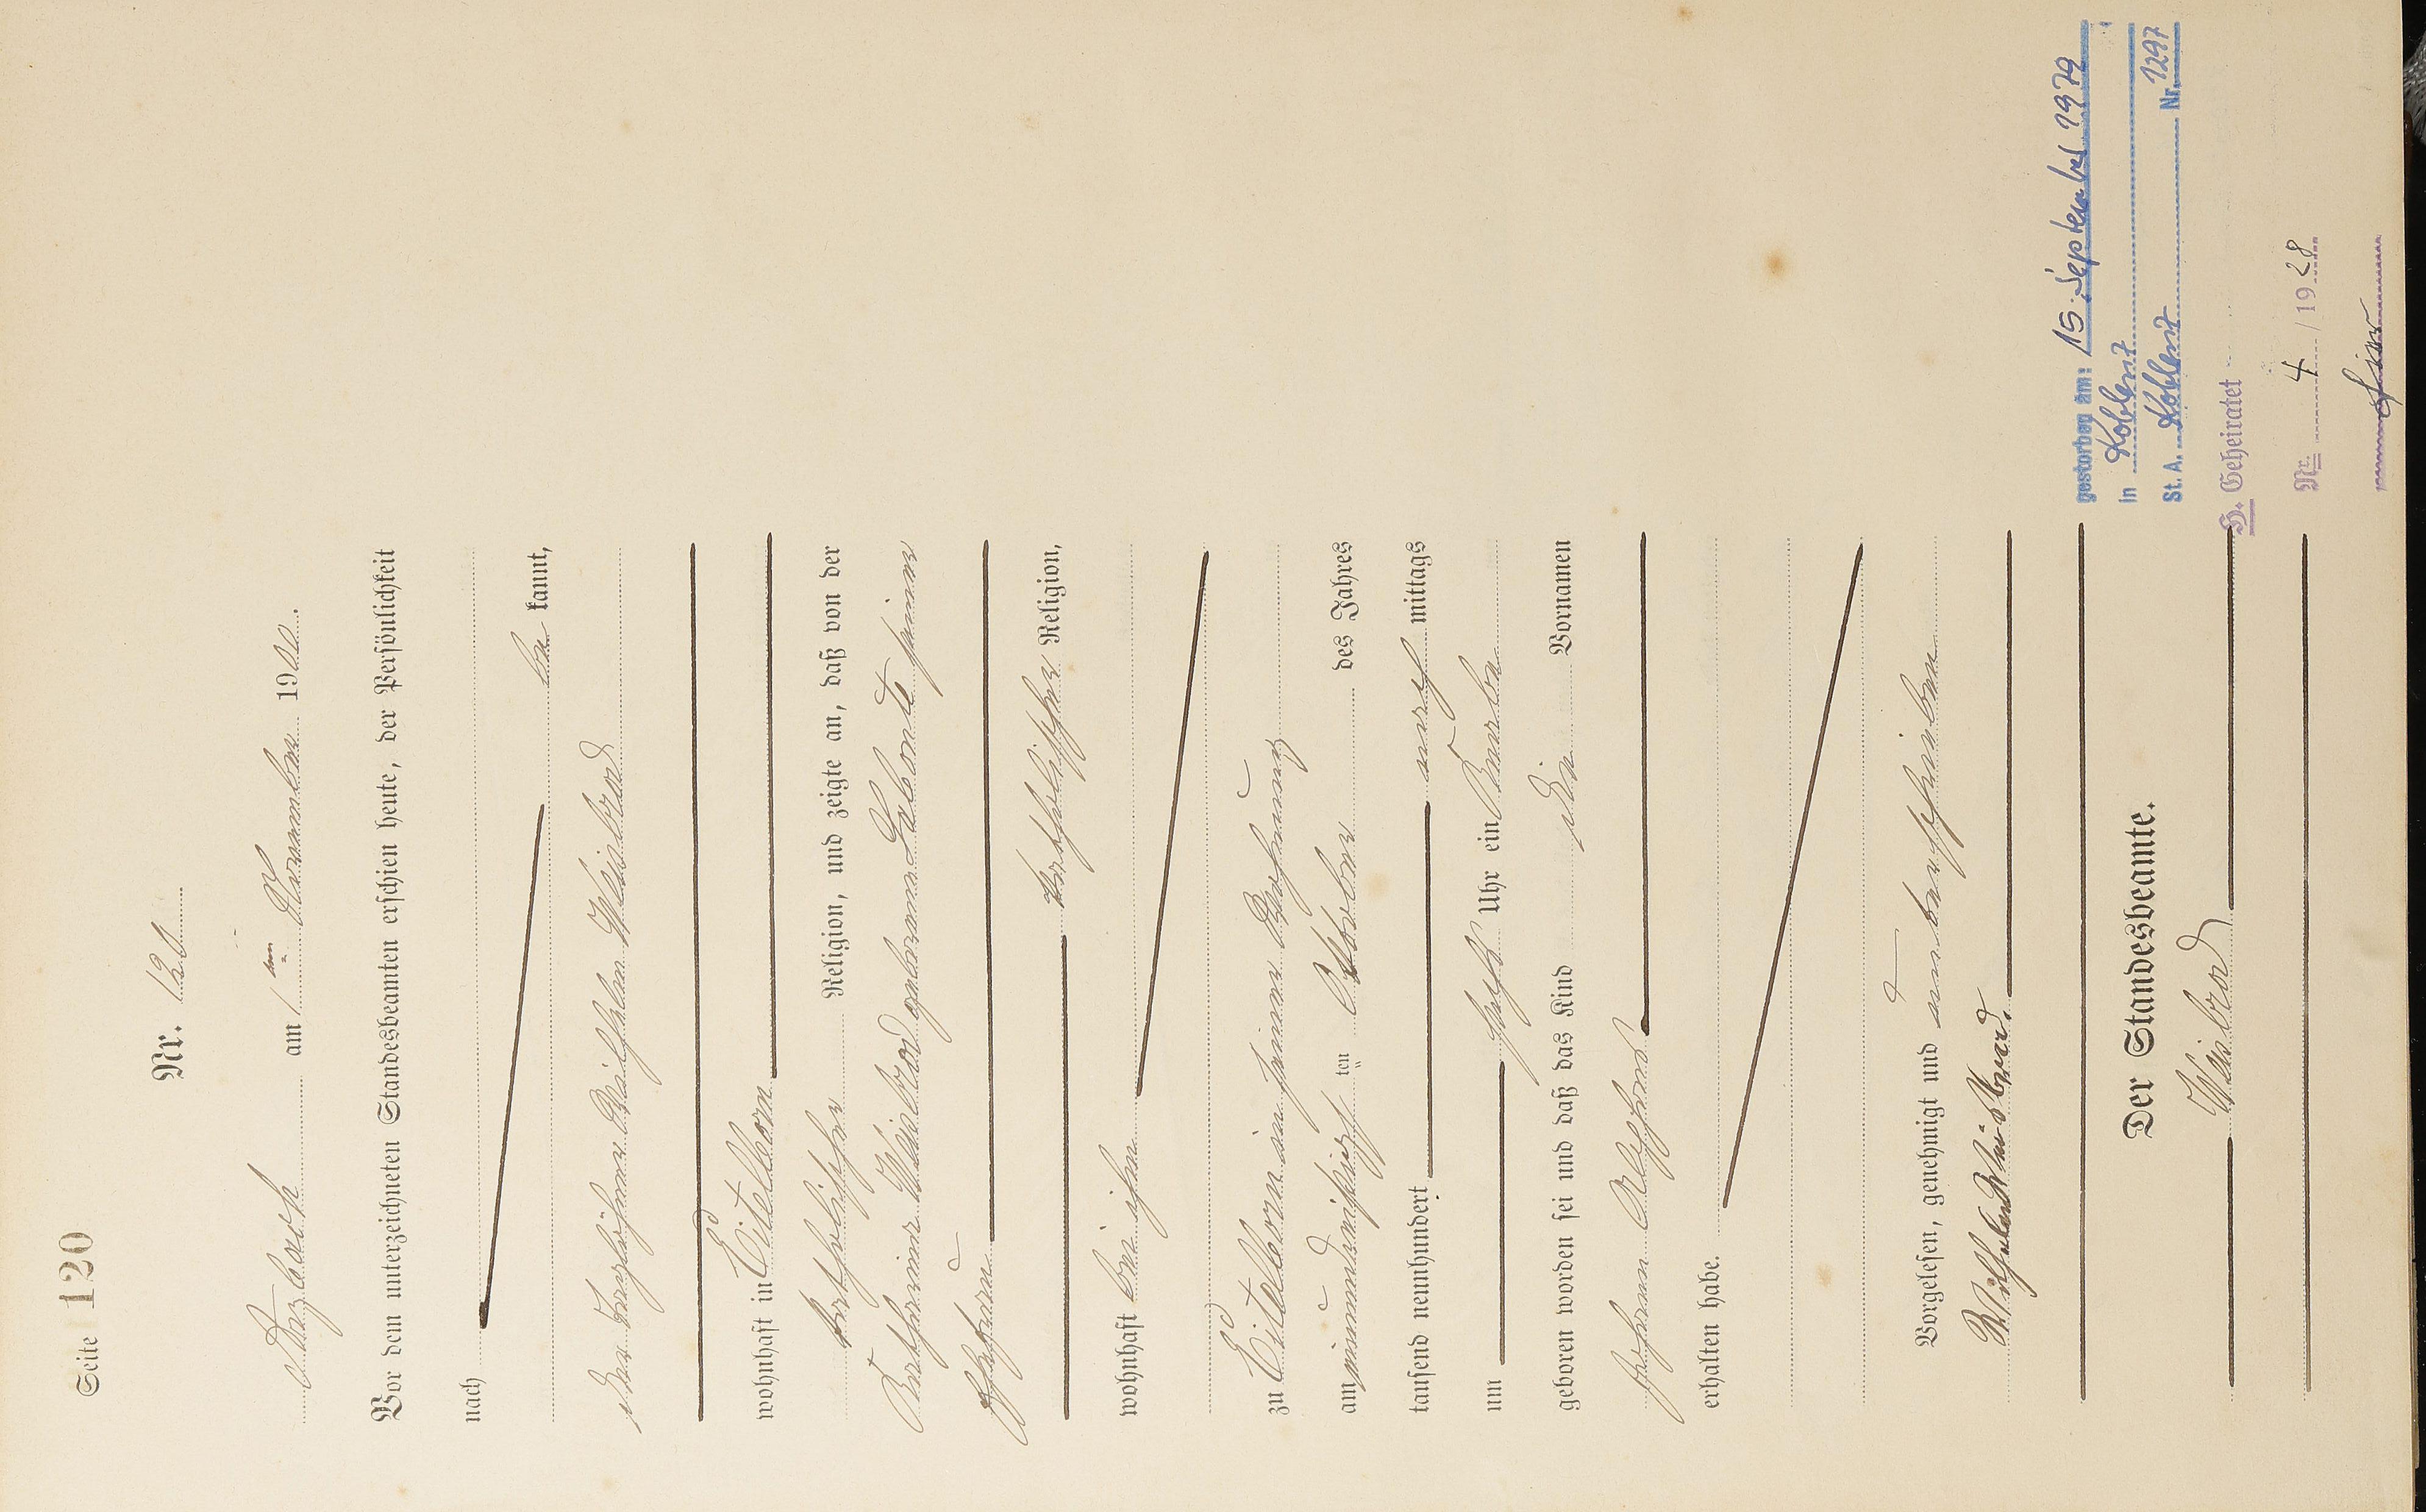 Seite 120
Nr. 120
Arzbach am 1 ten November 1900.
Vor dem unterzeichneten Standesbeamten erschien heute, der Persönlichkeit
nach be kannt,
der Taglöhner Wilhelm Weisbrod
wohnhaft in Eitelborn
katholischer Religion, und zeigte an, daß von der
Katharina Weisbrod geborenen Labonte seiner
Ehefrau
katholischer Religion,
wohnhaft bei ihm
zu Eitelborn in seiner Wohnung
am einunddreißigsten ten Oktober des Jahres
tausend neunhundert nach mittags
um Uhr ein Knabe
geboren worden sei und daß das Kind die Vornamen
Johann Alfons
erhalten habe.
Vorgelesen, genehmigt und unterschrieben
Wilhelm Weisbrod.
Der Standesbeamte.
Weisbrod
gestorben am: 15. September 1979
in Koblenz
St. A. Koblenz Nr. 1297
H. Geheiratet
Nr. 4 / 19 28
hier